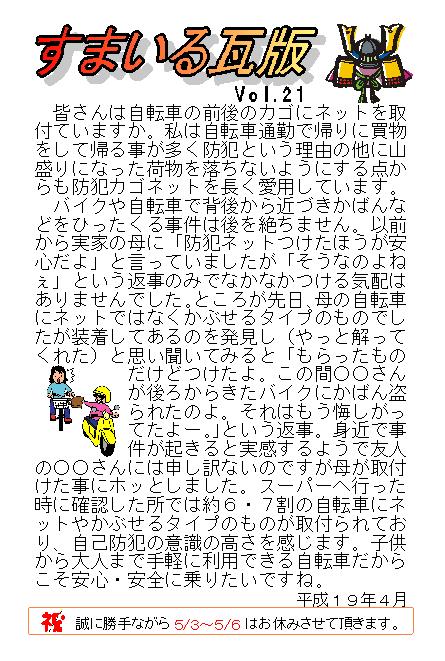 すまいる瓦版
Vol.21
皆さんは自転車の前後のカゴにネットを取
付ていますか。私は自転車通勤で帰りに買物
をして帰る事が多く防犯という理由の他に山
盛りになった荷物を落ちないようにする点か
らも防犯カゴネットを長く愛用しています。
バイクや自転車で背後から近づきかばんな
どをひったくる事件は後を絶ちません。以前
から実家の母に「防犯ネットつけたほうが安
心だよ」と言っていましたが「そうなのよね
ぇ」という返事のみでなかなかつける気配は
ありませんでした。ところが先日、母の自転車
にネットではなくかぶせるタイプのものでし
たが装着してあるのを発見し（やっと解って
くれた）と思い聞いてみると「もらったもの
だけどつけたよ。この間〇〇さん
が後ろからきたバイクにかばん盗
られたのよ。それはもう悔しがっ
てたよー。」という返事。身近で事
件が起きると実感するようで友人
の〇〇さんには申し訳ないのですが母が取付
けた事にホッとしました。スーパーへ行った
時に確認した所では約６・７割の自転車にネ
ットやかぶせるタイプのものが取付られてお
り、自己防犯の意識の高さを感じます。子供
から大人まで手軽に利用できる自転車だから
こそ安心・安全に乗りたいですね。
平成１９年４月
祝 誠に勝手ながら 5/3～5/6 はお休みさせて頂きます。